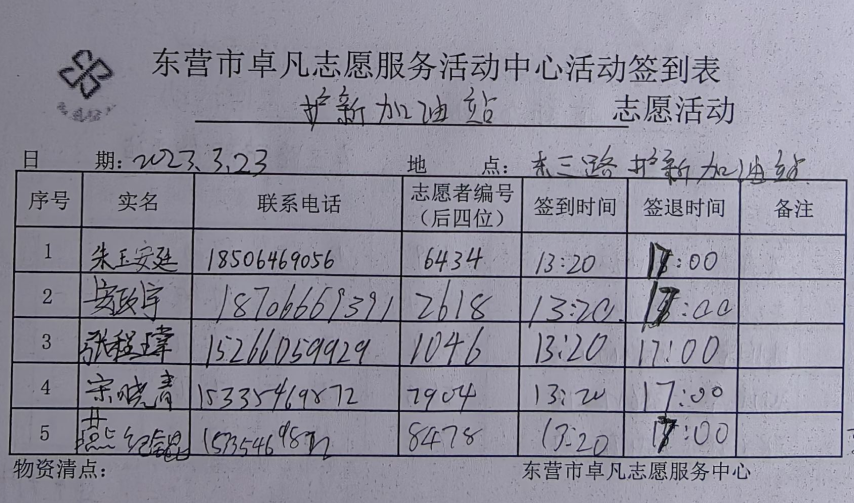 东营市卓凡志愿服务活动中心活动签到表
护新加油站 志愿活动
日 期: 2023.3.23 地 点: 东三路护新加油站
序号 实名 联系电话 志愿者编号（后四位） 签到时间 签退时间 备注
1 朱玉安廷 18506469056 6434 13:20 17:00
2 18706669391 2618 13:20 17:00
3 张程瑋 15266059929 1046 13:20 17:00
4 宋晓青 15335469872 7904 13:20 17:00
5 8478 13:20 17:00
物资清点： 东营市卓凡志愿服务中心